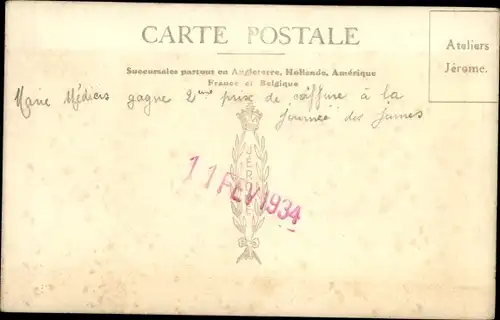 CARTE POSTALE
Ateliers
Jérome.
Succursales partout en Angleterre, Hollande, Amérique
France et Belgique
Marie Médicis gagne 2eme prix de coiffure à la
Journée des Jeunes
JEROME
11 FEV 1934